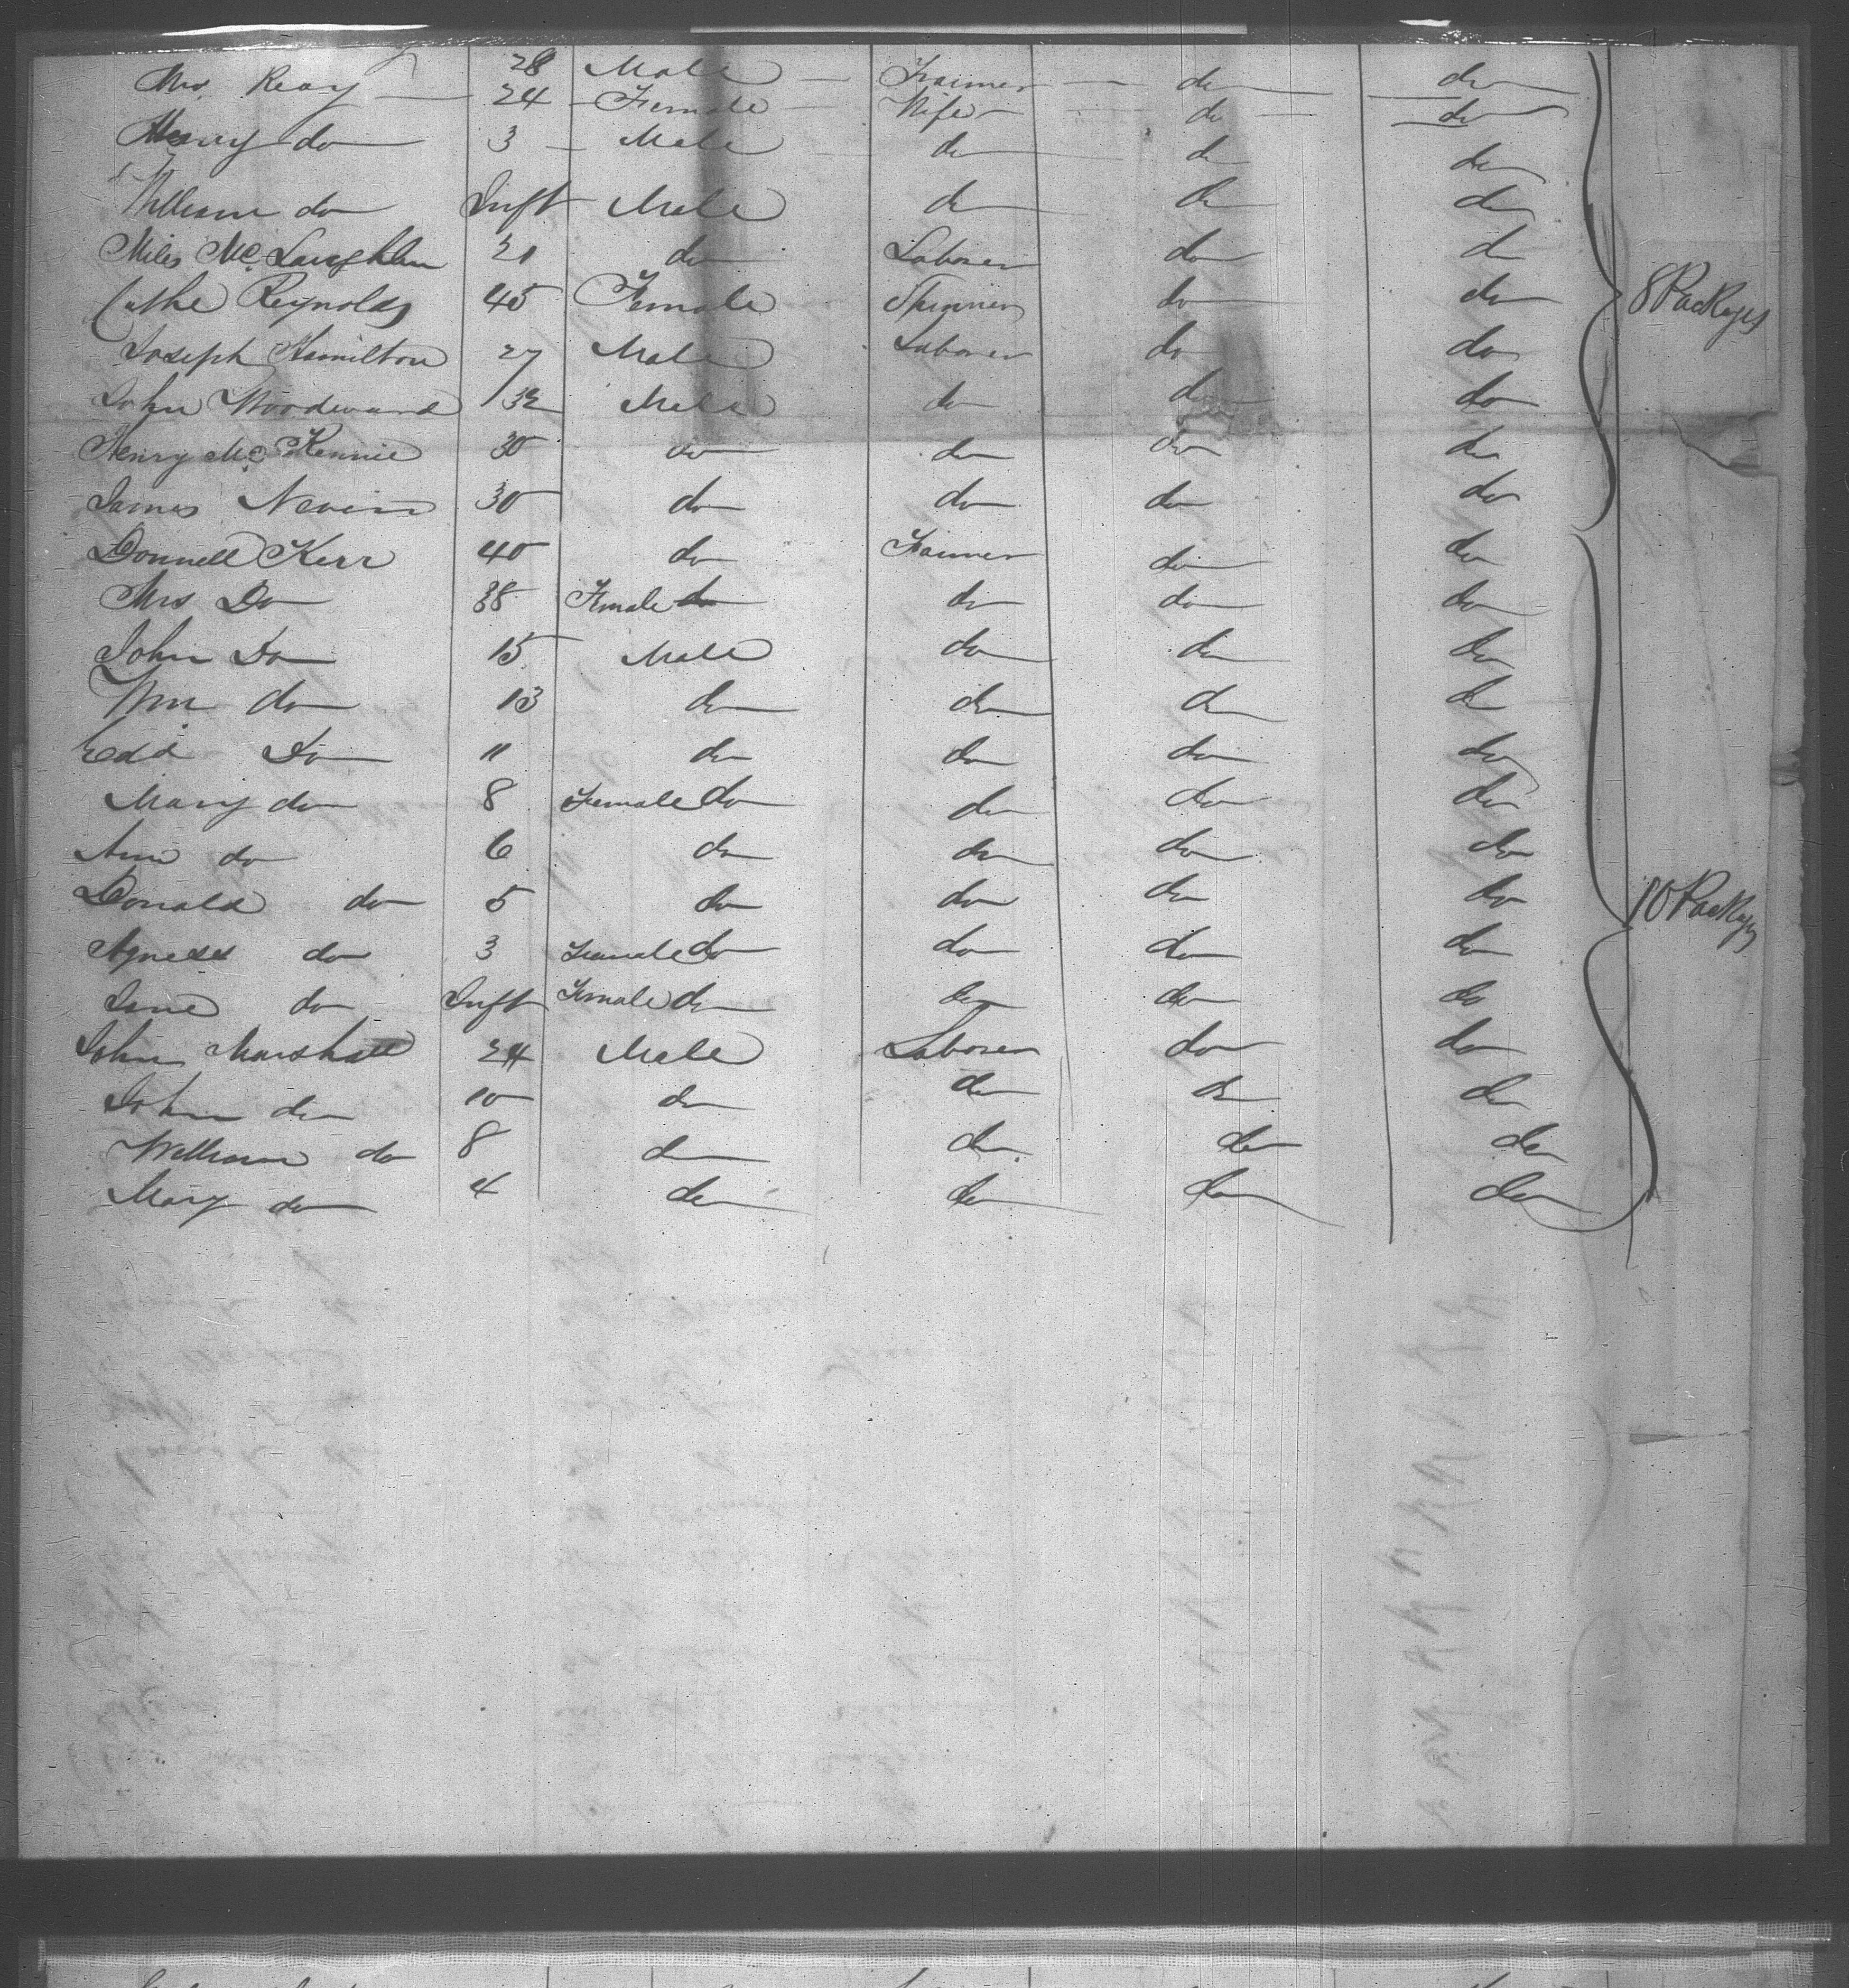 28 Male Farmer do do
Mrs Reay 24 Female Wife do do
Henry do 3 Male do do do
William do Inft Male do do do
Miles McLaughlin 21 do Laborer do d
Cathe Reynolds 45 Female Spinner do do
8 Packages
Joseph Hamilton 27 Male Laborer do do
John Woodward 32 Male do do do
Henry McKennie 30 do do do do
James Nevin 30 do do do do
Donnell Kerr 40 do Farmer do do
Mrs Do 38 Female do do do do
John Do 15 Male do do do
Wm do 13 do do do do
Edd Do 11 do do do do
Mary do 8 Female do do do do
Ann do 6 do do do do
Donald do 5 do do do do
10 Packages
Agness do 3 Female do do do do
Jane do Inft Female do do do do
John Marshall 24 Male Laborer do do
John do 10 do do do do
William do 8 do do do do
Mary do 4 do do do do